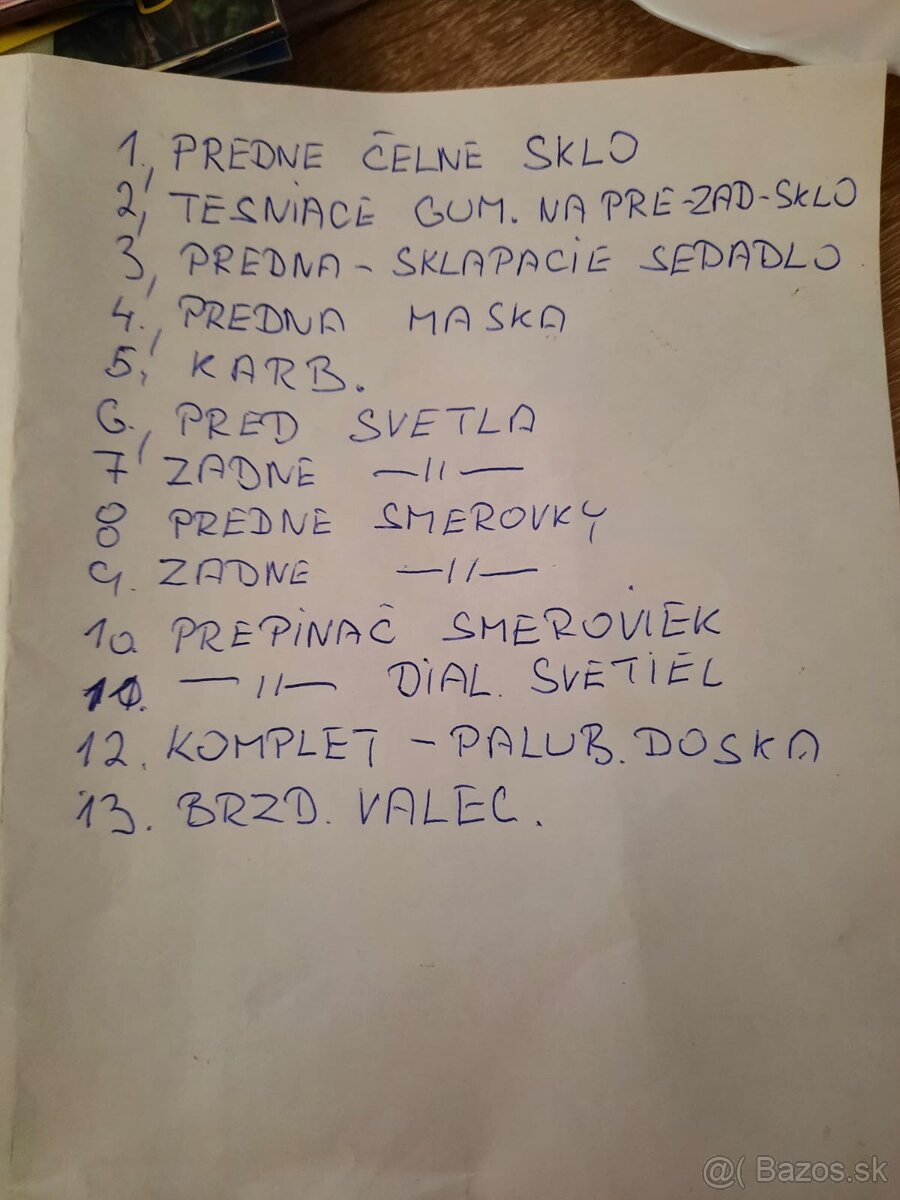 1., PREDNE ČELNE SKLO
2, TESNIACE GUM. NA PRE-ZAD-SKLO
3, PREDNA - SKLAPACIE SEDADLO
4., PREDNA MASKA
5, KARB.
6., PRED SVETLA
7 ZADNE —11—
8 PREDNE SMEROVKY
9. ZADNE —11—
10 PREPINAČ SMEROVIEK
10. —11— DIAL. SVETIEL
12. KOMPLET - PALUB. DOSKA
13. BRZD. VALEC.
@( Bazos.sk